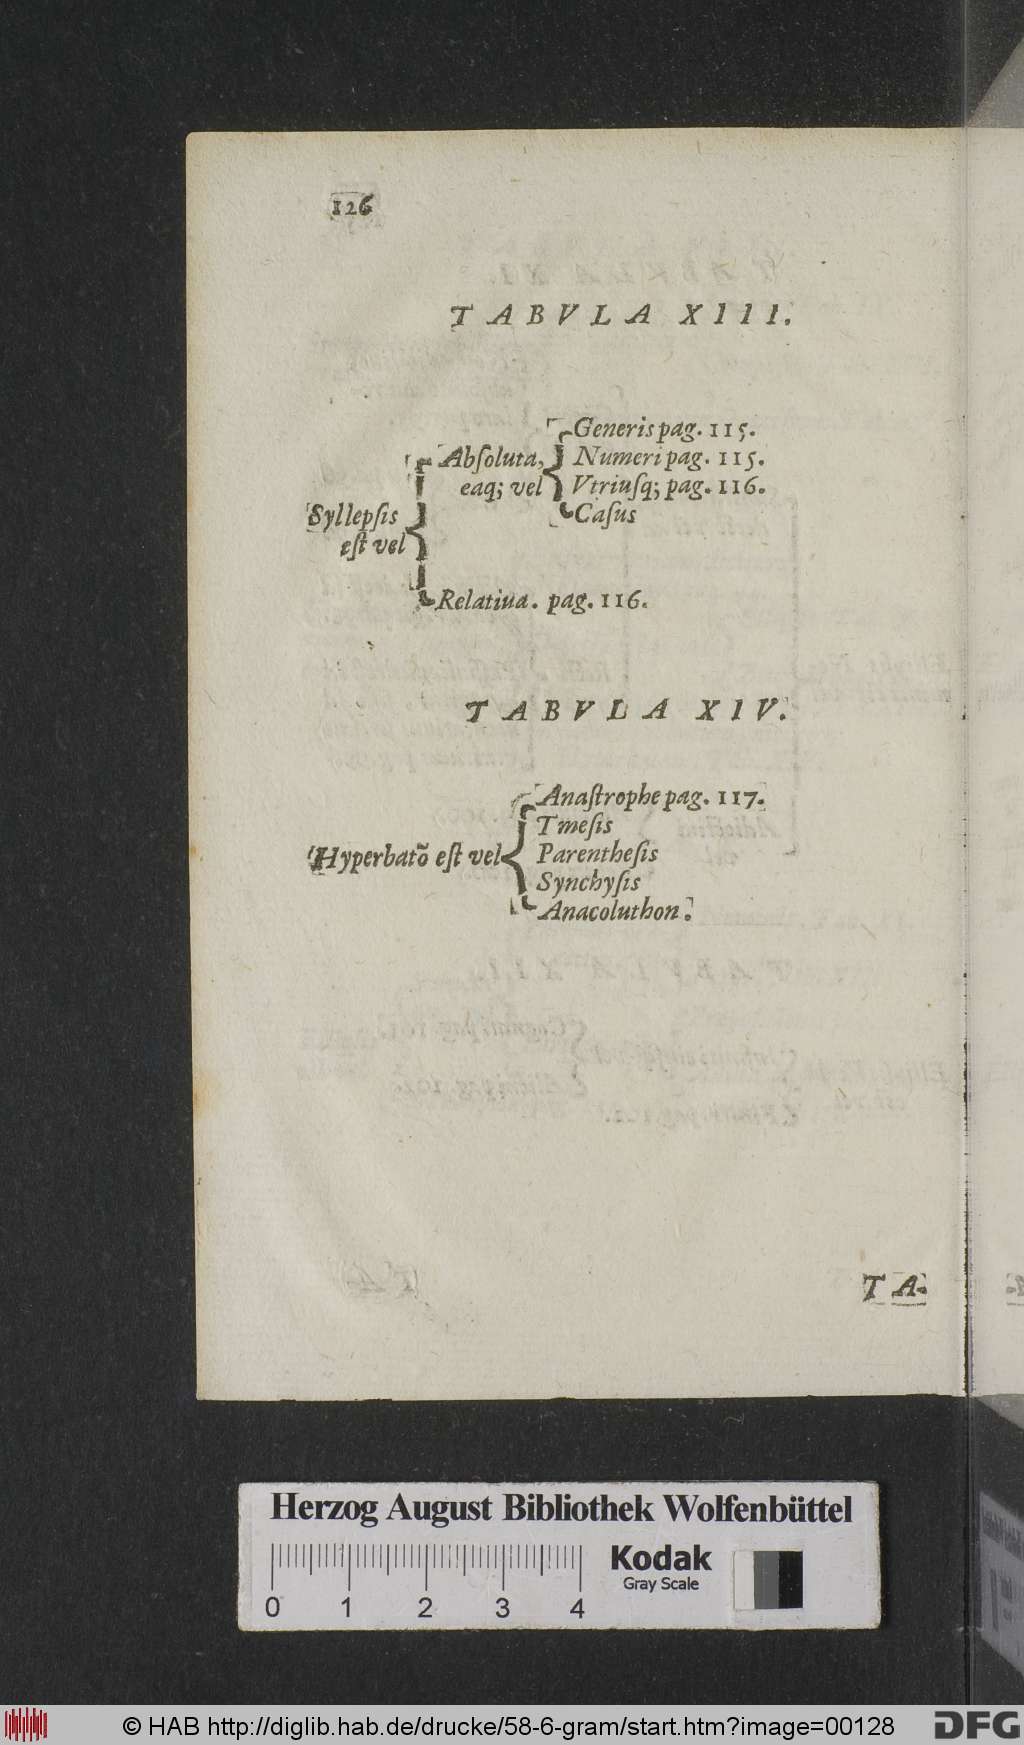 126
TABVLA XIII.
Generis pag. 115.
Abſoluta, Numeri pag. 115.
eaq; vel Vtriuſq; pag. 116.
Syllepſis Caſus
eſt vel
Relatiua. pag. 116.
TABVLA XIV.
Anaſtrophe pag. 117.
Tmeſis
Hyperbatõ eſt vel Parentheſis
Synchyſis
Anacoluthon.
TA-
Herzog August Bibliothek Wolfenbüttel
Kodak
Gray Scale
0 1 2 3 4
© HAB http://diglib.hab.de/drucke/58-6-gram/start.htm?image=00128
DFG